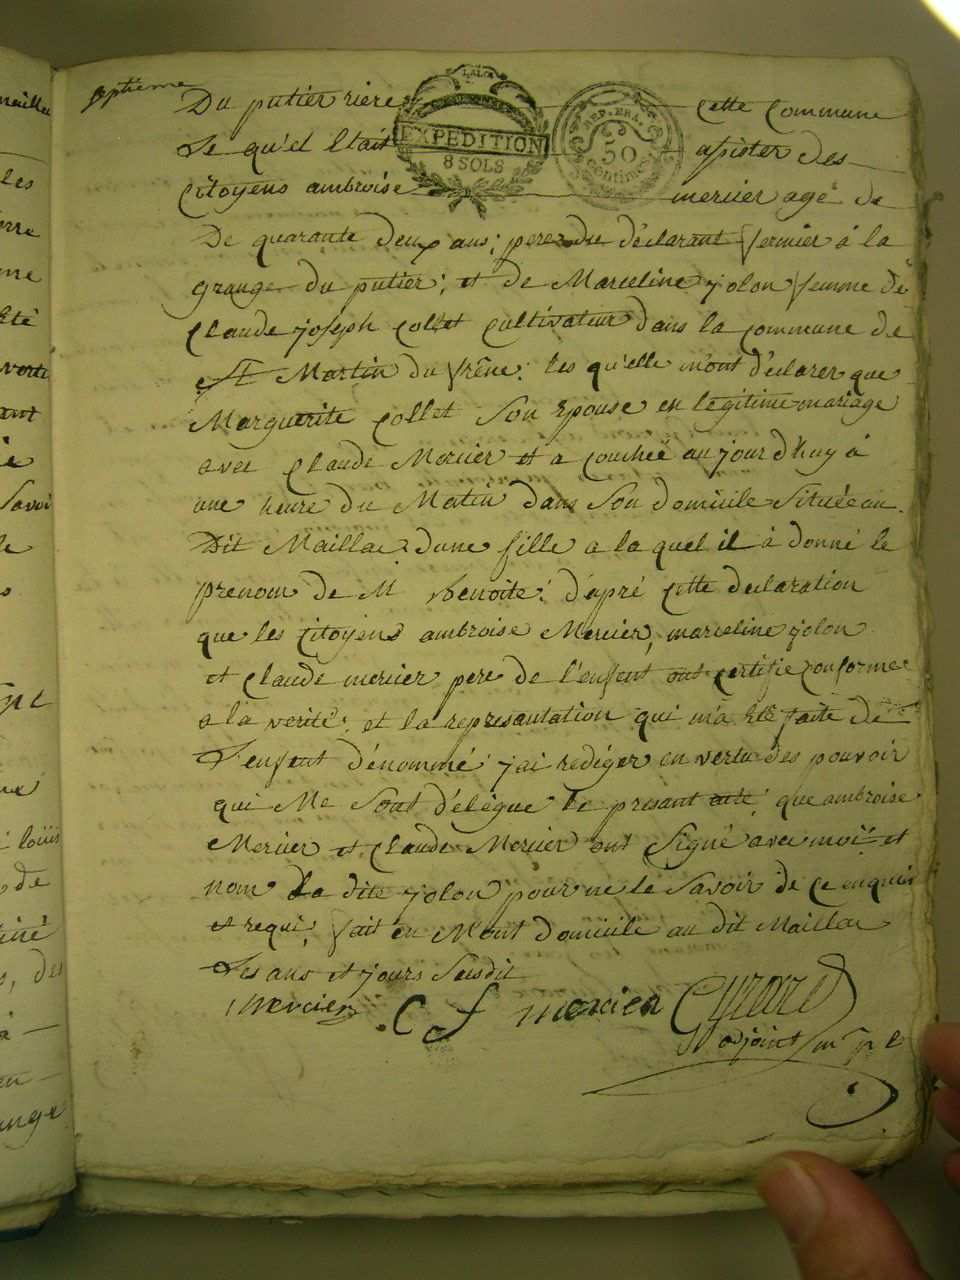 septieme
Du putier riere cette Commune
LALOI
EXPEDITION
8 SOLS
REP. FRA.
50
Centimes
Le qu'el Etait assister des
Citoyens ambroise mercier agé de
De quarante deux ans; pere du déclarant fermier à la
grange du putier; et de Marceline jolon femme de
Claude joseph Collet Cultivateur dans la Commune de
St Martin du frêne: les qu'elle m'ont déclarer que
Marguerite Collet Son Epouse en légitime mariage
avec Claude Mercier et a Couchée au jour d'huy à
une heure du Matin dans Son domicile Située au
Dit Maillac dune fille a la quel il à donné le
prenom de M benoite: d'apré Cette declaration
que les Citoyens ambroise Mercier, marceline jolon
et Claude mercier pere de l'enfent ont certifie Conforme
a la verité; et la represantation qui m'a Eté faite de
L'enfent dénommé j'ai rediger en vertu des pouvoir
qui Me Sont délégue le present acte; que ambroise
Mercier et Claude Mercier ont Signé avec moi et
nom La dite jolon pour ne le Savoir de Ce enquis
et requi, fait en Mont Domicile au dit Maillac
Les ans et jours Susdit
mercier C f mercier
adjoint